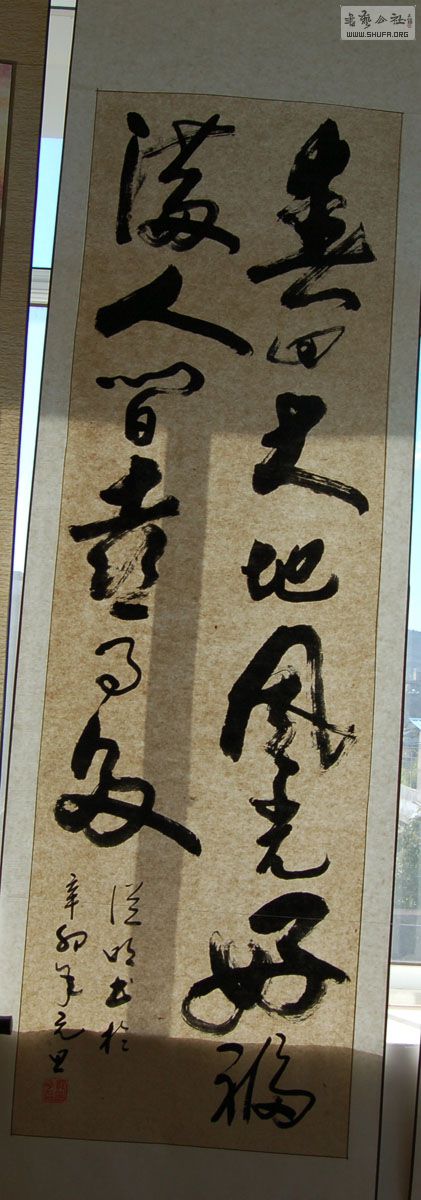 春回大地風光好福
滿人間喜事多
從明书於
辛卯年元旦
书艺公社
WWW.SHUFA.ORG